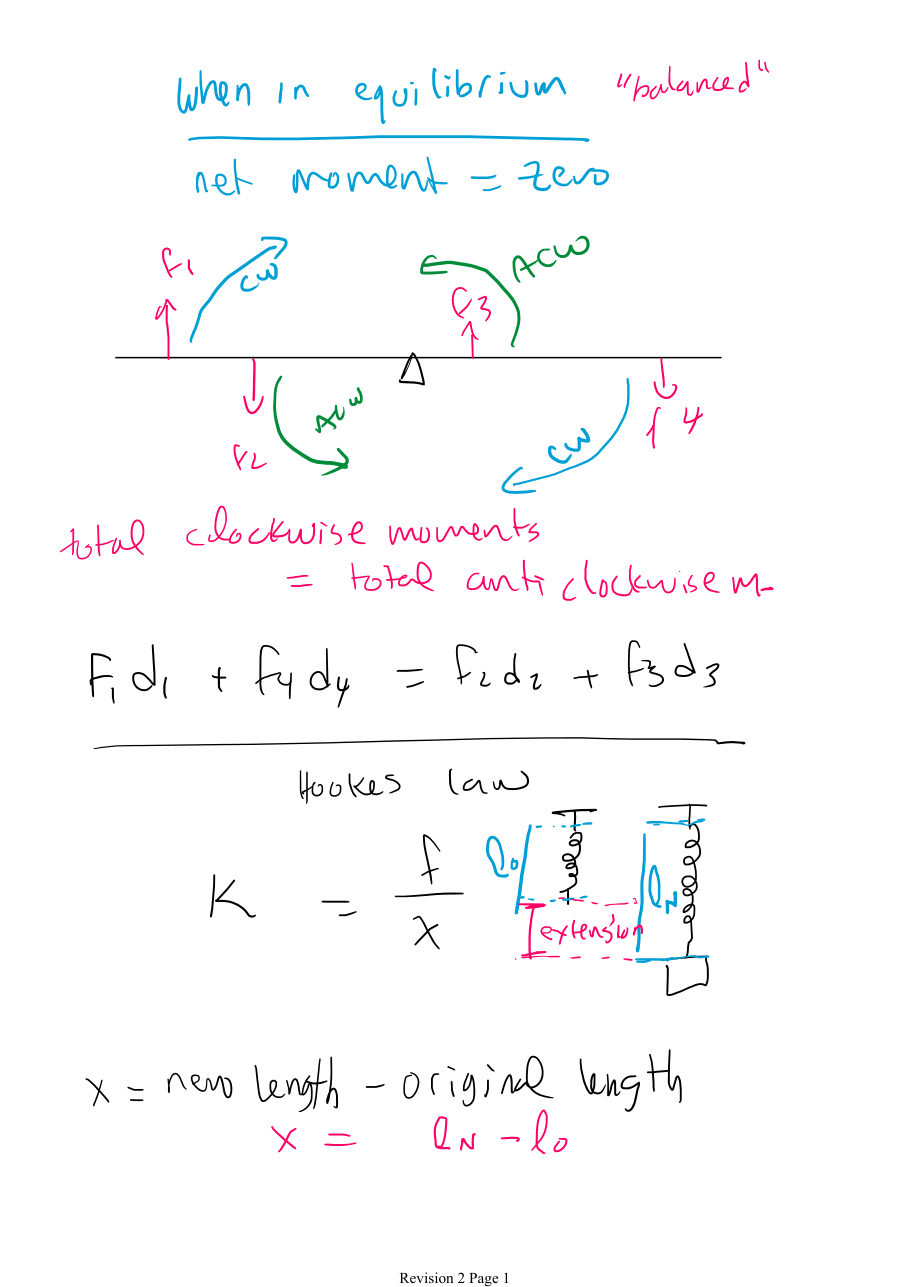 When in equilibrium "balanced"
net moment = zero
F1 CW F3 ACW
F2 ACW CW f4
total clockwise moments
= total anti clockwise m-
F1d1 + f4d4 = f2d2 + f3d3
Hookes law
K = f/x
l0 extension lN
x = new length - original length
x = lN - l0
Revision 2 Page 1